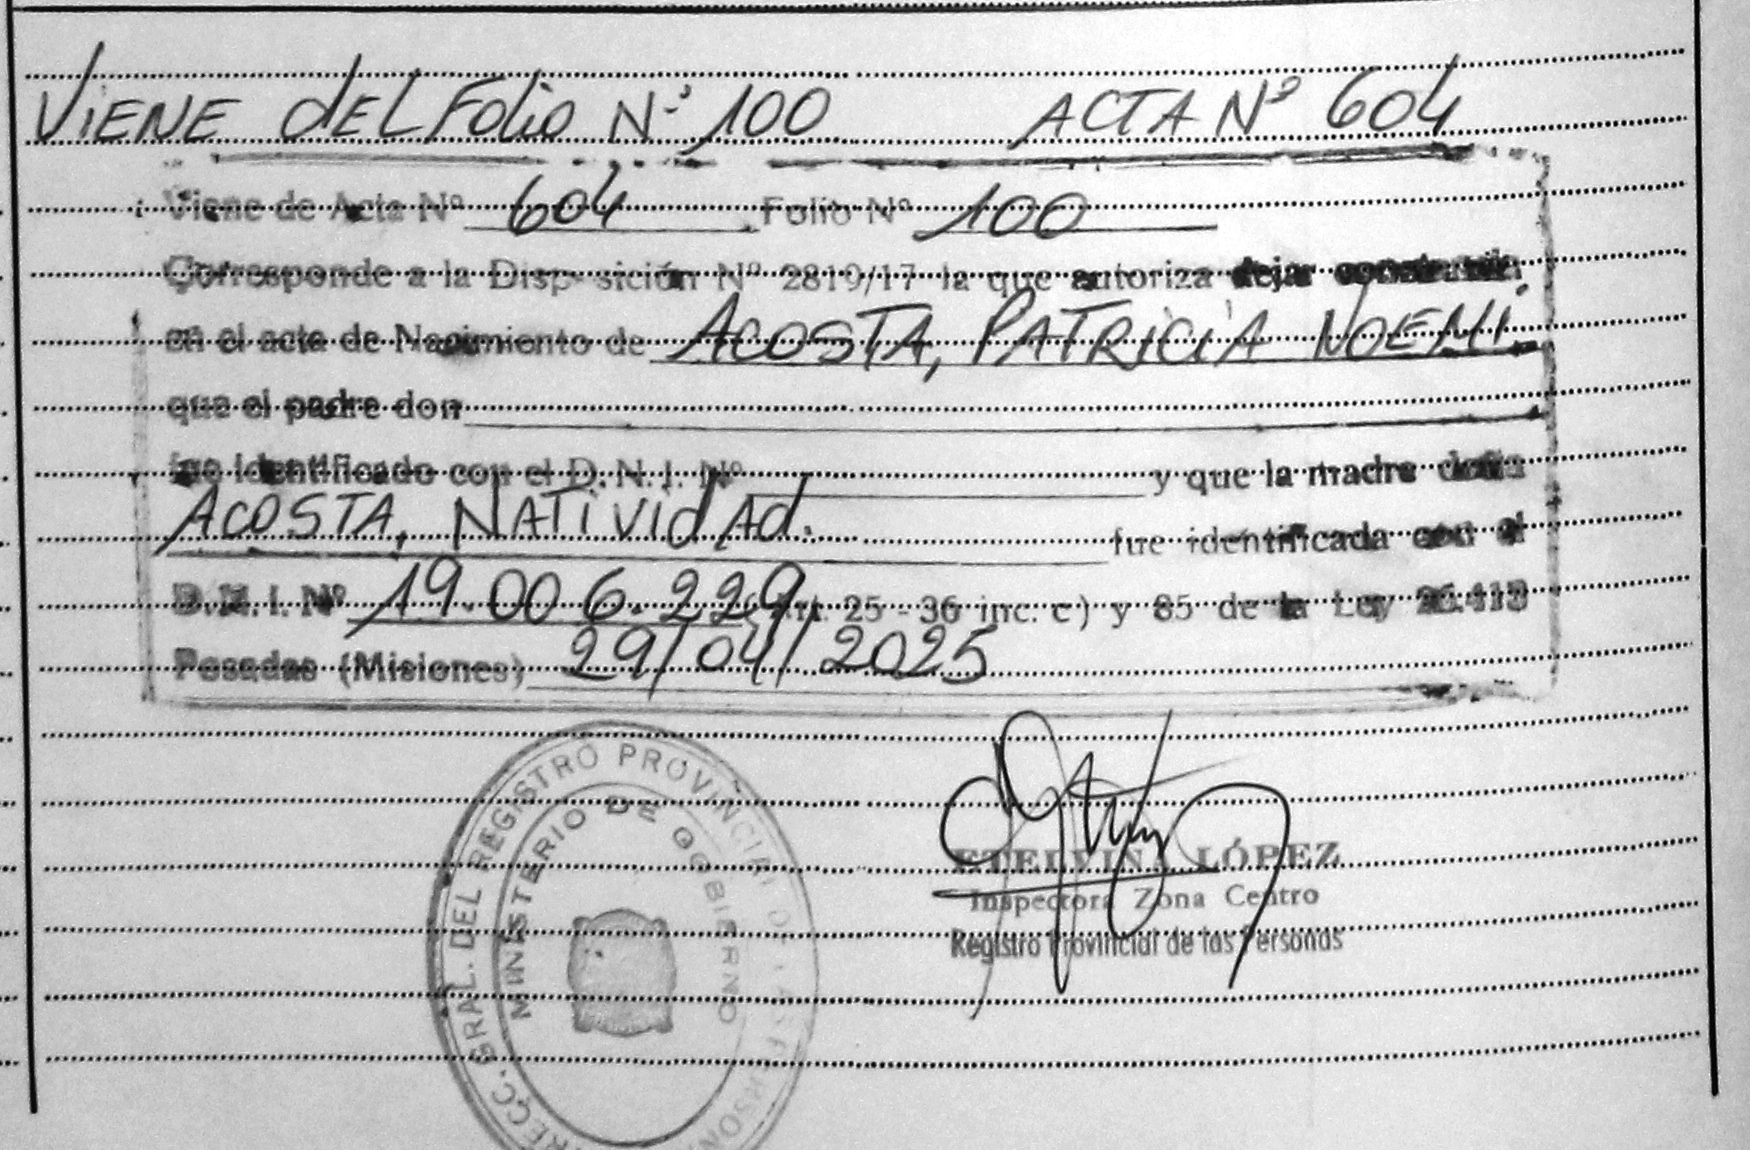 ViENE dEL Folio Nº 100 ACTA Nº 604
Viene de Acta Nº 604 Folio Nº 100
Corresponde a la Disposición Nº 2819/17 la que autoriza dejar constancia
en el acta de Nacimiento de ACOSTA, PATRICIA NOEMI.
que el padre don
fue identificado con el D. N. I. Nº y que la madre doña
ACOSTA, NATIVIdAd.
fue identificada con el
D. N. I. Nº 19.006.229 (Art. 25 - 36 inc. c) y 85 de la Ley 26.413
Posadas (Misiones) 29/04/2025
RECC. GRAL. DEL REGISTRO PROVINCIAL DE LAS PERSON
MINISTERIO DE GOBIERNO
ETELVINA LÓPEZ
Inspectora Zona Centro
Registro Provincial de las Personas